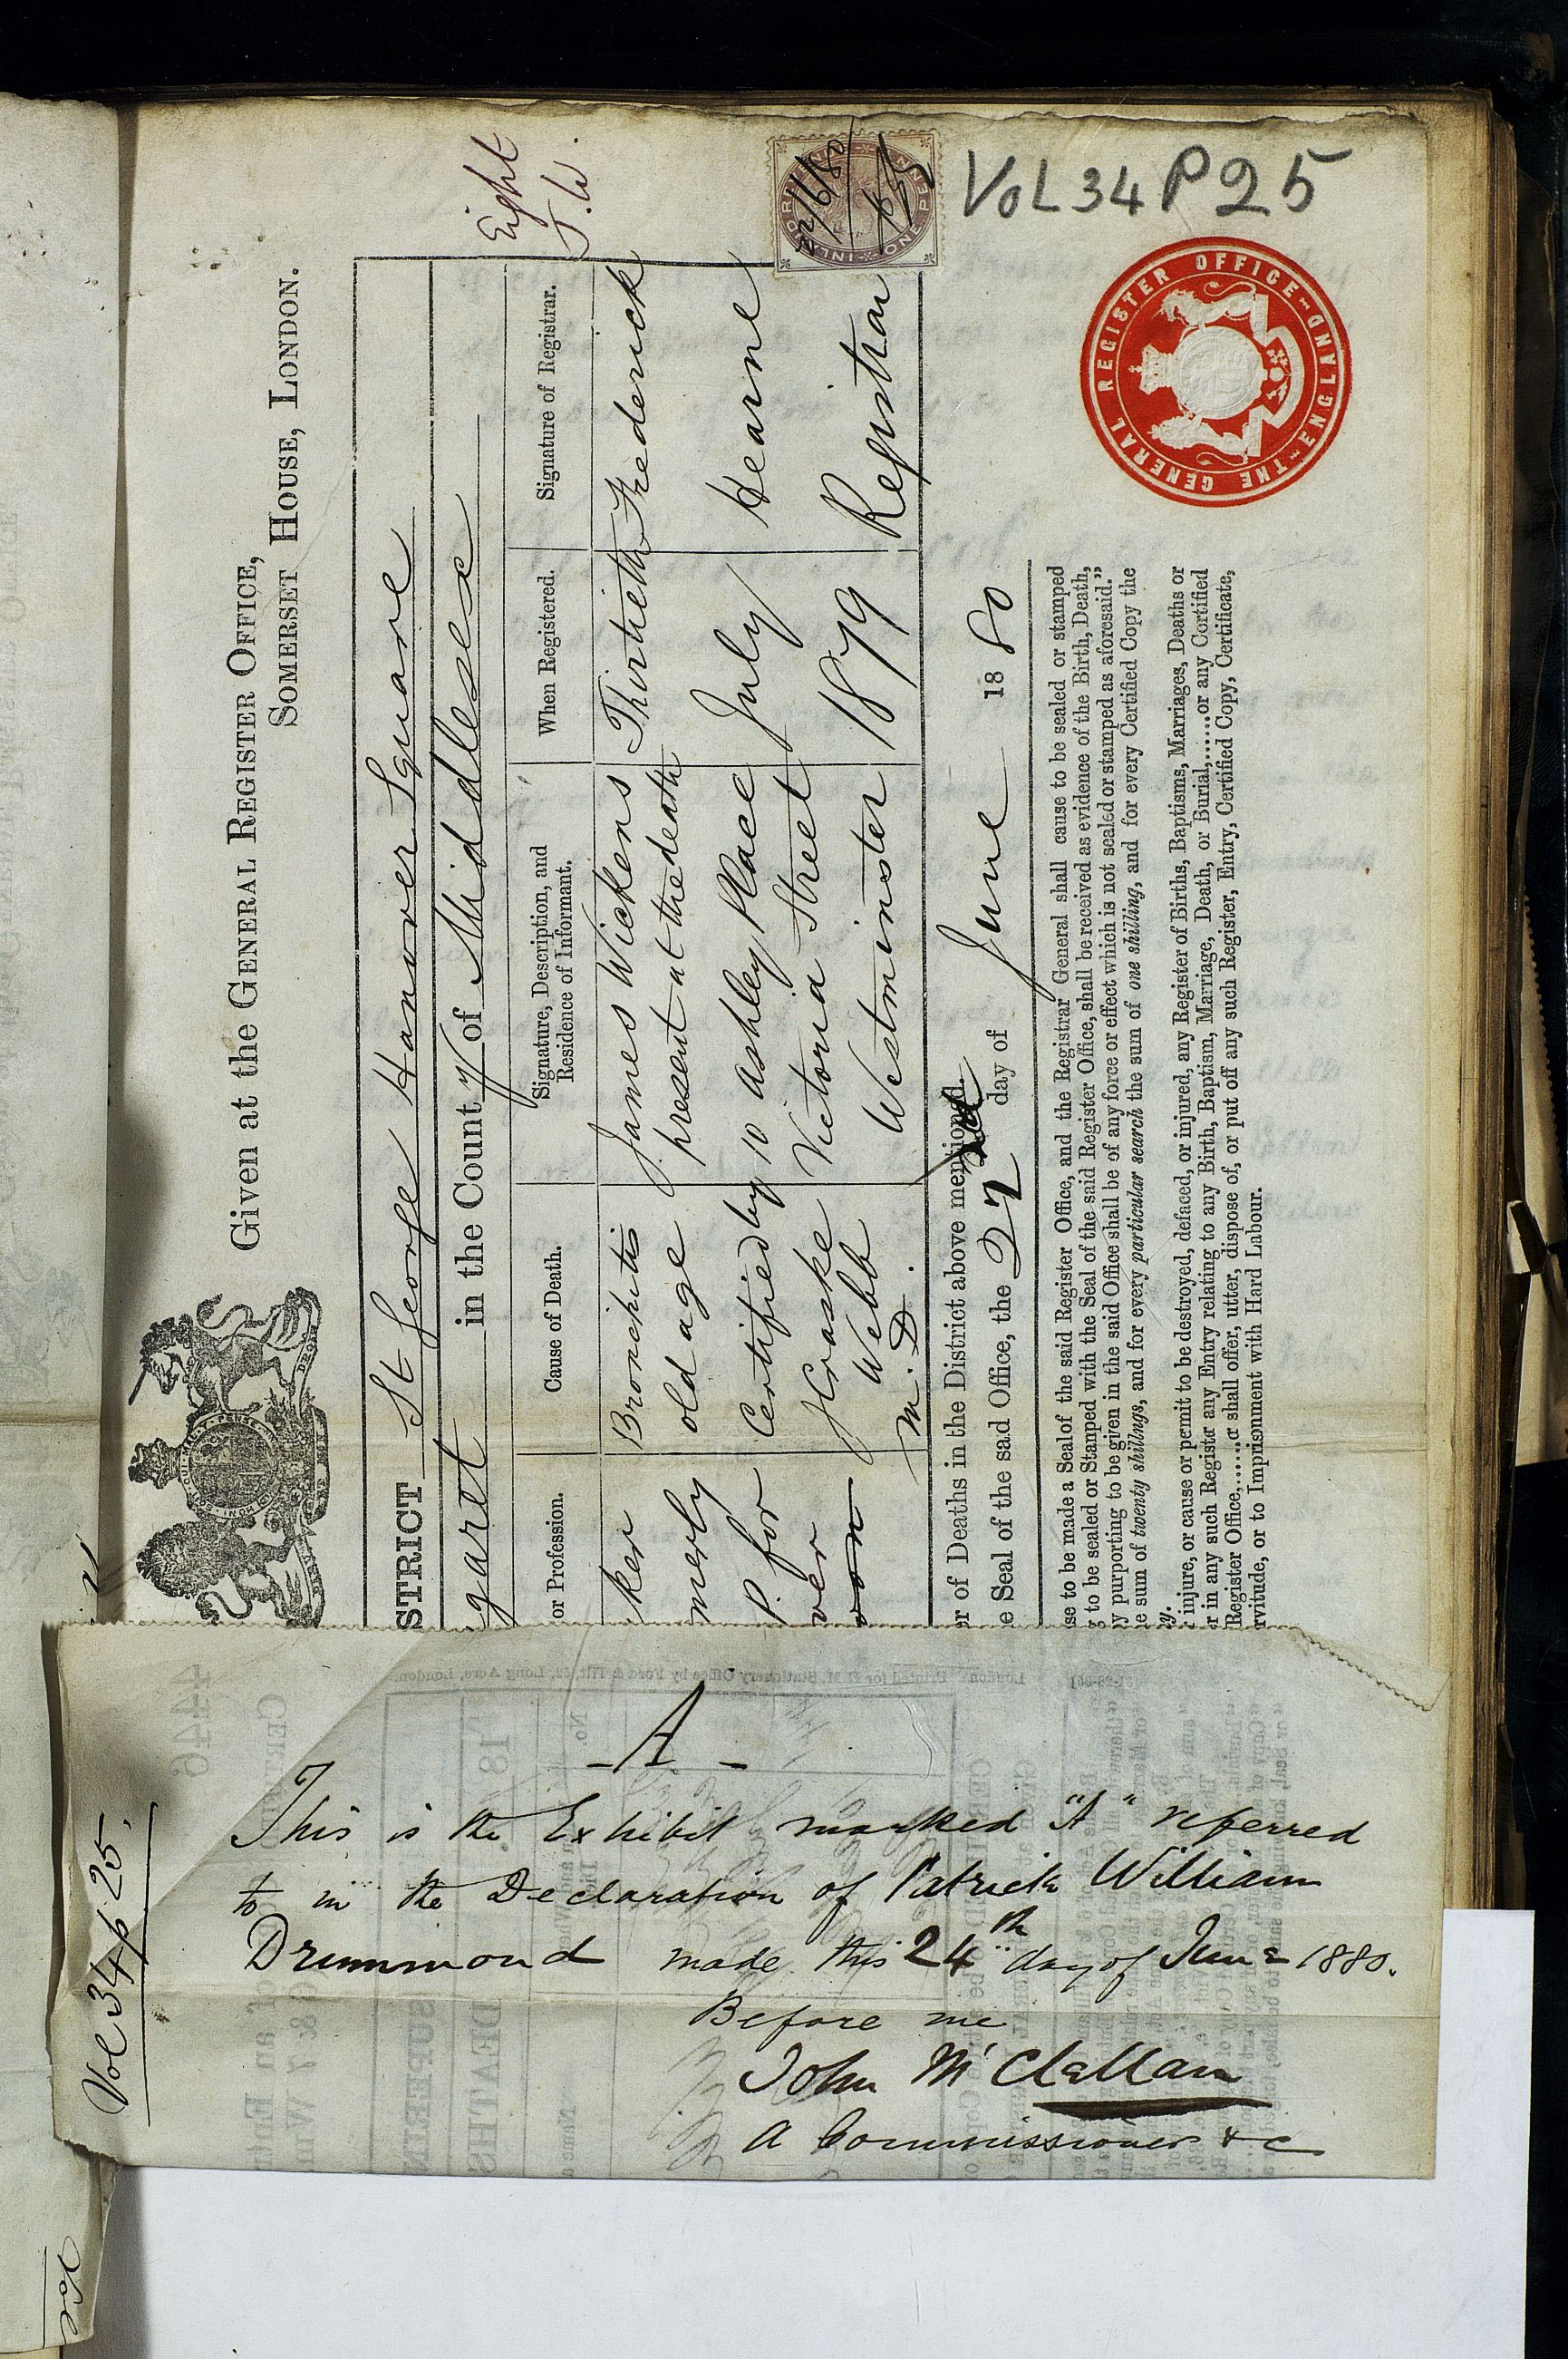 Given at the GENERAL REGISTER OFFICE,
SOMERSET HOUSE, LONDON.
STRICT St George Hanover Square
garet in the County of Middlesex
or Profession.
Cause of Death.
Signature, Description, and
Residence of Informant.
When Registered.
Signature of Registrar.
ker
merly
P. for
ver
Bronchitis
old age
Certified by
J Craske
Webb
M.D.
James Wickens
present at the death
10 Ashley Place
Victoria Street
Westminster
Thirtieth
July
1879
Frederick
Hearne
Registrar
Eight
J.W.
22/6/80
INLAND REVENUE ONE PENNY
VOL 34 P 25
er of Deaths in the District above mentioned.
e Seal of the said Office, the 22nd day of June 1880
GENERAL REGISTER OFFICE ENGLAND
use to be made a Seal of the said Register Office, and the Registrar General shall cause to be sealed or stamped
g to be sealed or Stamped with the Seal of the said Register Office, shall be received as evidence of the Birth, Death,
y purporting to be given in the said Office shall be of any force or effect which is not sealed or stamped as aforesaid."
he sum of twenty shillings, and for every particular search the sum of one shilling, and for every Certified Copy the
y.
injure, or cause or permit to be destroyed, defaced, or injured, any Register of Births, Baptisms, Marriages, Deaths or
er in any such Register any Entry relating to any Birth, Baptism, Marriage, Death, or Burial,......or any Certified
Register Office,......or shall offer, utter, dispose of, or put off any such Register, Entry, Certified Copy, Certificate,
rvitude, or to Imprisonment with Hard Labour.
Vol 34 p 25.
- A -
This is the Exhibit marked "A" referred
to in the Declaration of Patrick William
Drummond made this 24th day of June 1880.
Before me
John McClellan
A Commissioner &c